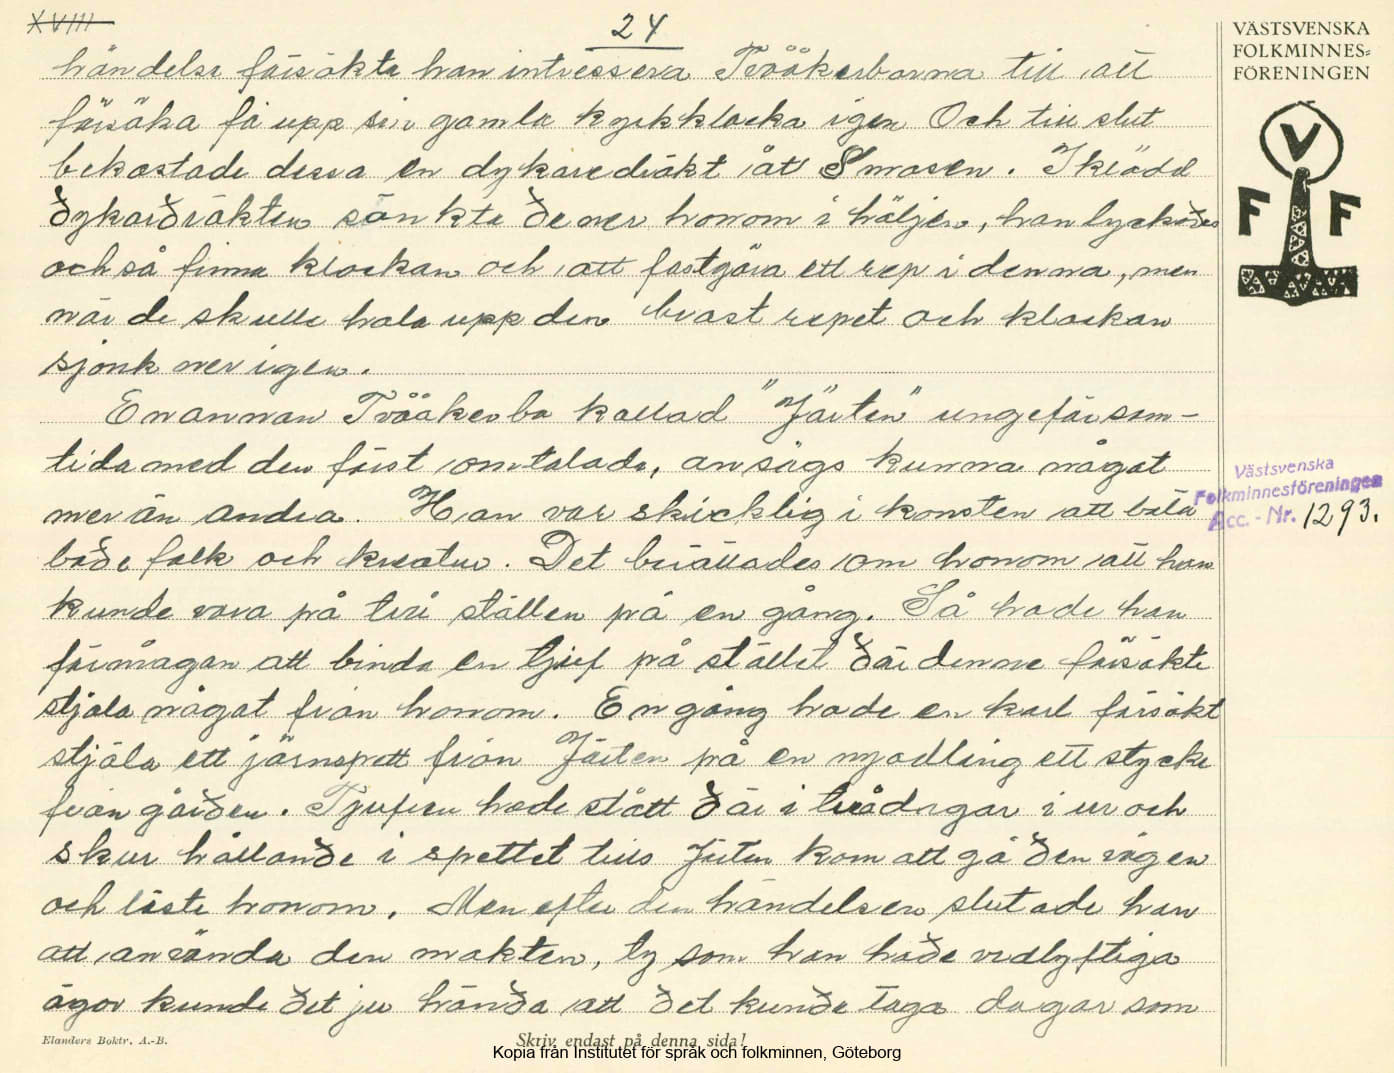 XVIII
24
händelse försökte han intressera Tvååkerborna till att
försöka få upp sin gamla kyrkklocka igen Och till slut
bekostade dessa en dykaredräkt åt Smasen. Iklädd
dykardräkten sänkte de ner honom i höljen, han lyckades
också finna klockan och att fastgöra ett rep i denna, men
när de skulle hala upp den brast repet och klockan
sjönk ner igen.
En annan Tvååkerbo kallad "Järten" ungefär sam-
tida med den först omtalade, ansågs kunna något
mer än andra. Han var skicklig i konsten att bota
både folk och kreatur. Det berättades om honom att han
kunde vara på två ställen på en gång. Så hade han
förmågan att binda en tjuf på stället där denne försökte
stjäla något från honom. En gång hade en karl försökt
stjäla ett järnspett från Järten på en nyodling ett stycke
från gården. Tjufven hade stått där i två dagar i ur och
skur hållande i spettet tills Järten kom att gå den vägen
och löste honom. Men efter den händelsen slutade han
att använda den makten, ty som han hade vidlyftiga
ägor kunde det ju hända att det kunde taga dagar som
VÄSTSVENSKA
FOLKMINNES-
FÖRENINGEN
V
F F
Västsvenska
Folkminnesföreningen
Acc. - Nr. 1293.
Elanders Boktr. A.-B.
Skriv endast på denna sida!
Kopia från Institutet för språk och folkminnen, Göteborg